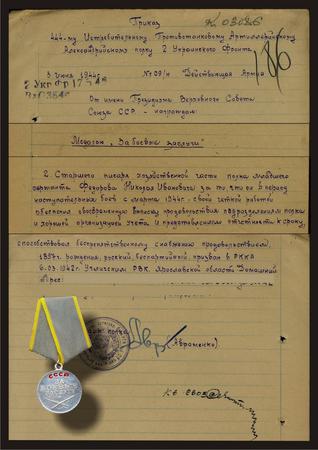 Приказ
444-му Истребительному Противотанковому Артиллерийскому
Александрийскому полку 2 Украинского Фронта
3 июня 1944г № 09/н Действующая Армия
От имени Президиума Верховного Совета
Союза ССР — награждаю:
Медалью „За боевые заслуги“
2. Старшего писаря хозяйственной части полка младшего
сержанта Федорова Николая Ивановича за то, что он в период
наступательных боев с марта 1944г. своей четкой работой
обеспечил своевременную выписку продовольствия подразделениям полка
и хорошей организацией учета и представлением отчетности к сроку,
способствовал бесперебойному снабжению продовольствием.
1897г. рождения, русский беспартийный призван в РККА
6.03.1942г. Угличским РВК, Ярославской области Домашний
полка
(Авраменко)
СССР
ЗА
БОЕВЫЕ
ЗАСЛУГИ